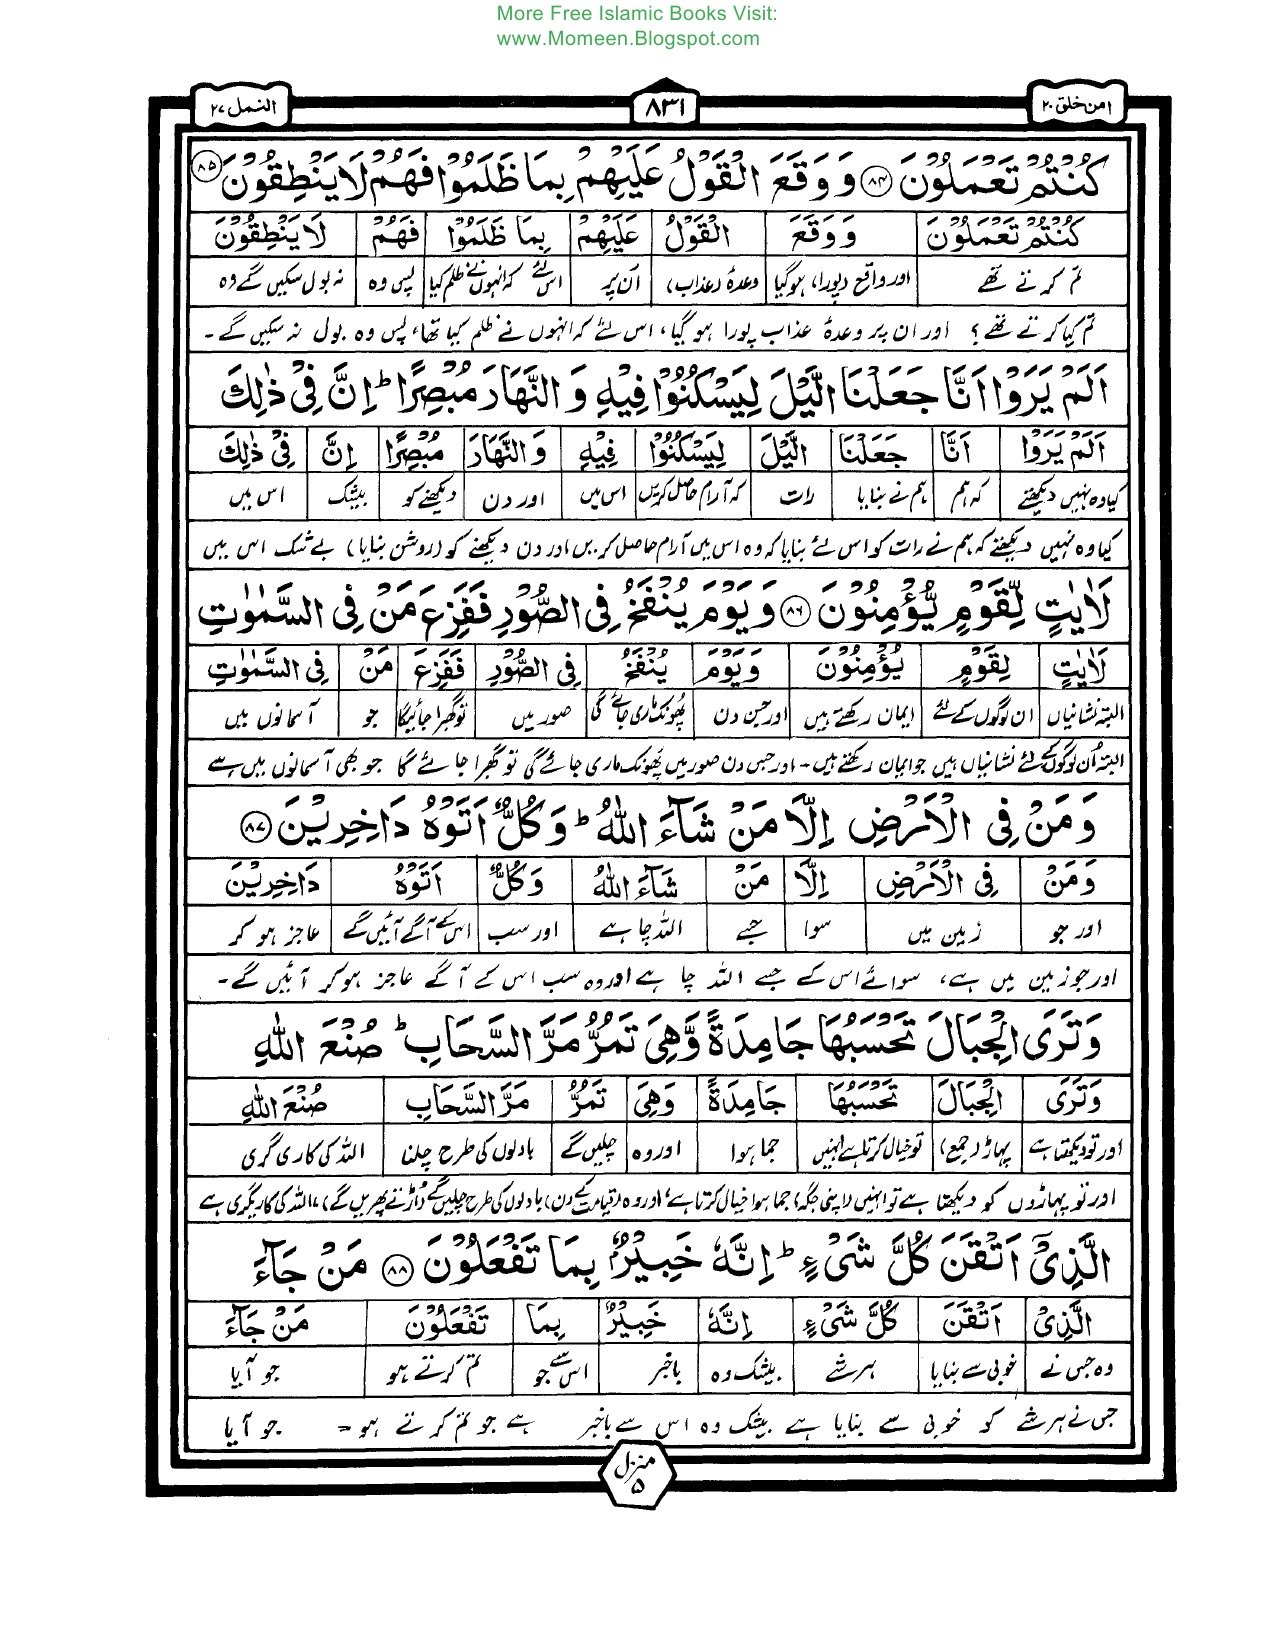 More Free Islamic Books Visit:
www.Momeen.Blogspot.com
امن خلق ۲۰
۸۳۱
النمل ۲۷
كُنْتُمْ تَعْمَلُوْنَ ۸۴ وَوَقَعَ الْقَوْلُ عَلَيْهِمْ بِمَا ظَلَمُوْا فَهُمْ لَا يَنْطِقُوْنَ ۸۵
كُنْتُمْ تَعْمَلُوْنَ وَوَقَعَ الْقَوْلُ عَلَيْهِمْ بِمَا ظَلَمُوْا فَهُمْ لَا يَنْطِقُوْنَ
تم کرتے تھے اور واقع (پورا) ہوگیا وعدۂ (عذاب) اُن پر اس لئے کہ انہوں نے ظلم کیا پس وہ نہ بول سکیں گے وہ
تم کیا کرتے تھے؟ اور ان پر وعدۂ عذاب پورا ہو گیا، اس لئے کہ انہوں نے ظلم کیا تھا، پس وہ بول نہ سکیں گے۔
اَلَمْ يَرَوْا اَنَّا جَعَلْنَا الَّيْلَ لِيَسْكُنُوْا فِيْهِ وَالنَّهَارَ مُبْصِرًا ؕ اِنَّ فِيْ ذٰلِكَ
اَلَمْ يَرَوْا اَنَّا جَعَلْنَا الَّيْلَ لِيَسْكُنُوْا فِيْهِ وَالنَّهَارَ مُبْصِرًا اِنَّ فِيْ ذٰلِكَ
کیا وہ نہیں دیکھتے کہ ہم ہم نے بنایا رات کہ آرام حاصل کریں اس میں اور دن دیکھنے کو بیشک اس میں
کیا وہ نہیں دیکھتے کہ ہم نے رات کو اس لئے بنایا کہ وہ اس میں آرام حاصل کریں اور دن دیکھنے کو (روشن بنایا) بے شک اس میں
لَاٰيٰتٍ لِّقَوْمٍ يُّؤْمِنُوْنَ ۸۶ وَيَوْمَ يُنْفَخُ فِي الصُّوْرِ فَفَزِعَ مَنْ فِي السَّمٰوٰتِ
لَاٰيٰتٍ لِقَوْمٍ يُؤْمِنُوْنَ وَيَوْمَ يُنْفَخُ فِي الصُّوْرِ فَفَزِعَ مَنْ فِي السَّمٰوٰتِ
البتہ نشانیاں ان لوگوں کے لئے ایمان رکھتے ہیں اور جس دن پھونک ماری جائے گی صور میں تو گھبرا جائیگا جو آسمانوں میں
البتہ اُن لوگوں کے لئے نشانیاں ہیں جو ایمان رکھتے ہیں۔ اور جس دن صور میں پھونک ماری جائے گی تو گھبرا جائے گا جو بھی آسمانوں میں ہے
وَمَنْ فِي الْاَرْضِ اِلَّا مَنْ شَآءَ اللّٰهُ ؕ وَكُلٌّ اَتَوْهُ دَاخِرِيْنَ ۸۷
وَمَنْ فِي الْاَرْضِ اِلَّا مَنْ شَآءَ اللّٰهُ وَكُلٌّ اَتَوْهُ دَاخِرِيْنَ
اور جو زمین میں سوا جسے اللہ چاہے اور سب اس کے آگے آئیں گے عاجز ہو کر
اور جو زمین میں ہے، سوائے اس کے جسے اللہ چاہے اور وہ سب اس کے آگے عاجز ہو کر آئیں گے۔
وَتَرَى الْجِبَالَ تَحْسَبُهَا جَامِدَةً وَّهِيَ تَمُرُّ مَرَّ السَّحَابِ ؕ صُنْعَ اللّٰهِ
وَتَرَى الْجِبَالَ تَحْسَبُهَا جَامِدَةً وَهِيَ تَمُرُّ مَرَّ السَّحَابِ صُنْعَ اللّٰهِ
اور تو دیکھتا ہے پہاڑ (جمع) تو خیال کرتا ہے انہیں جما ہوا اور وہ چلیں گے بادلوں کی طرح چلنا اللہ کی کاری گری
اور تو پہاڑوں کو دیکھتا ہے تو انہیں (اپنی جگہ) جما ہوا خیال کرتا ہے، اور وہ (قیامت کے دن) بادلوں کی طرح چلیں گے (اڑتے پھریں گے)، اللہ کی کاریگری ہے
الَّذِيْ اَتْقَنَ كُلَّ شَيْءٍ ؕ اِنَّهٗ خَبِيْرٌ بِمَا تَفْعَلُوْنَ ۸۸ مَنْ جَآءَ
الَّذِيْ اَتْقَنَ كُلَّ شَيْءٍ اِنَّهٗ خَبِيْرٌ بِمَا تَفْعَلُوْنَ مَنْ جَآءَ
وہ جس نے خوبی سے بنایا ہر شے بیشک وہ باخبر اس سے جو تم کرتے ہو جو آیا
جس نے ہر شے کو خوبی سے بنایا ہے بیشک وہ اس سے باخبر ہے جو تم کرتے ہو = جو آیا
منزل
۵